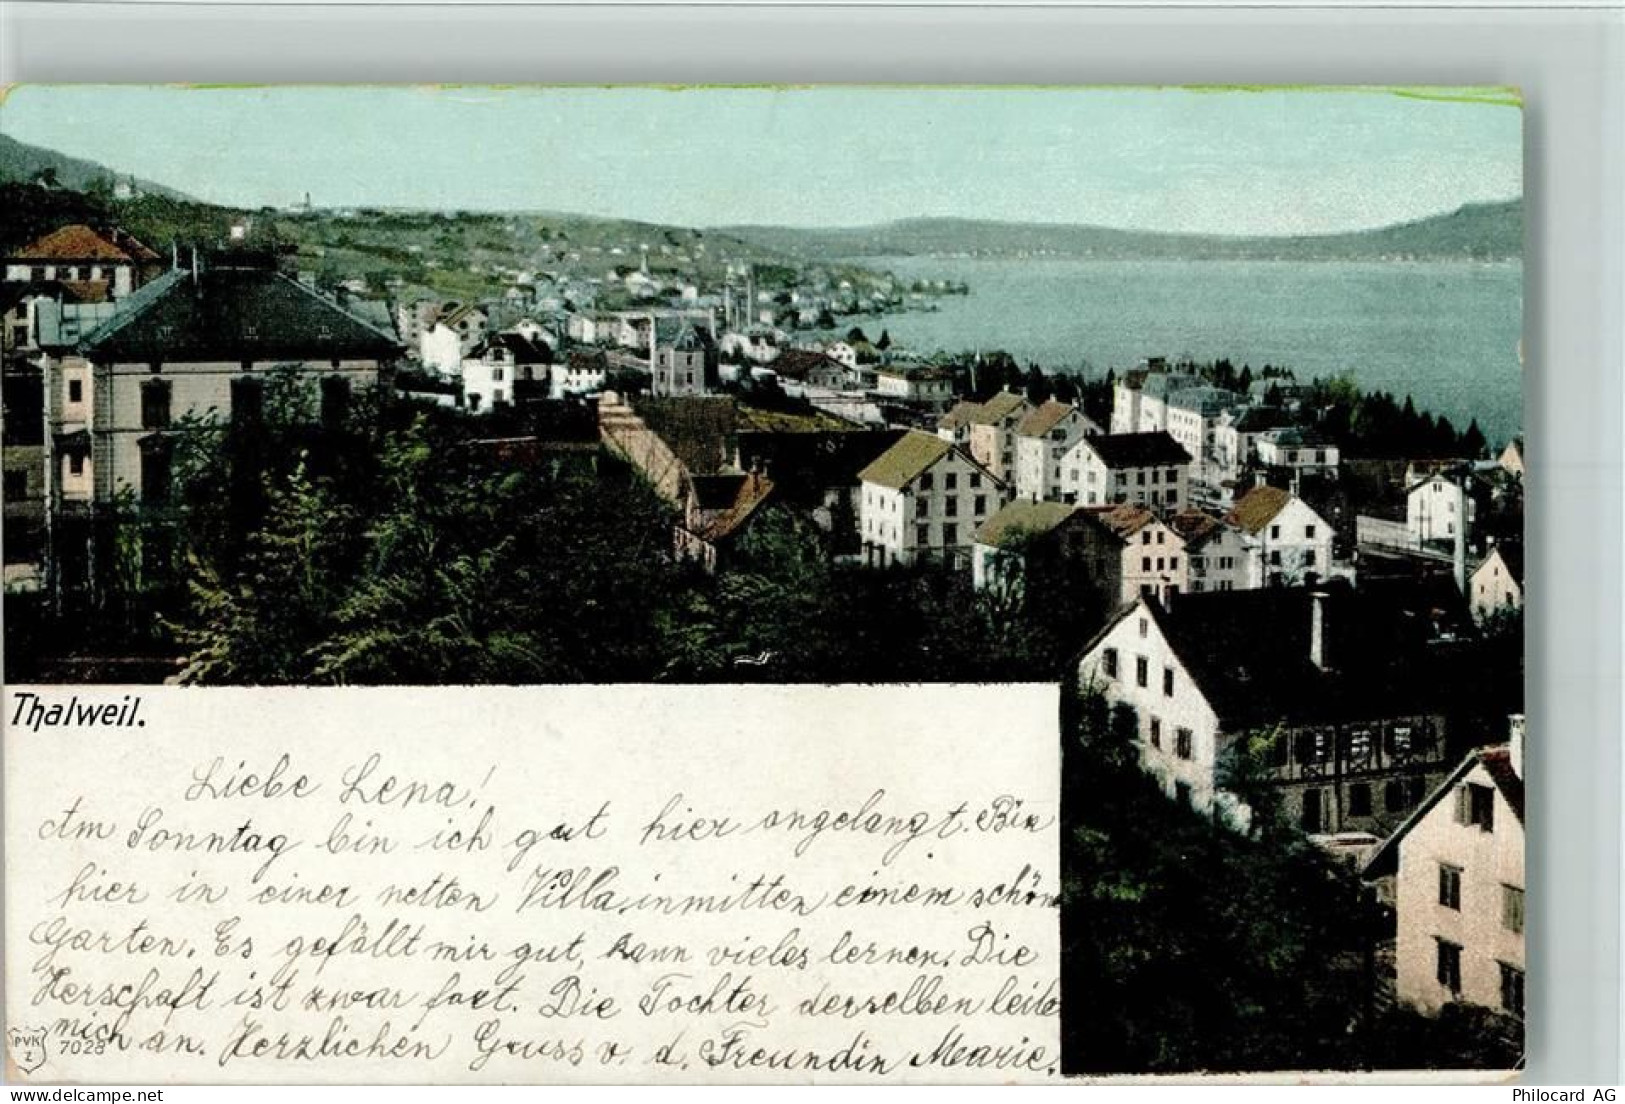 Thalweil.
Liebe Lena!
Am Sonntag bin ich gut hier angelangt. Bin
hier in einer netten Villa inmitten einem schön
Garten. Es gefällt mir gut, kann vieles lernen. Die
Herschaft ist zwar fort. Die Tochter derselben leite
mich an. Herzlichen Gruss v. d. Freundin Marie.
PVK
Z
7028
Philocard AG